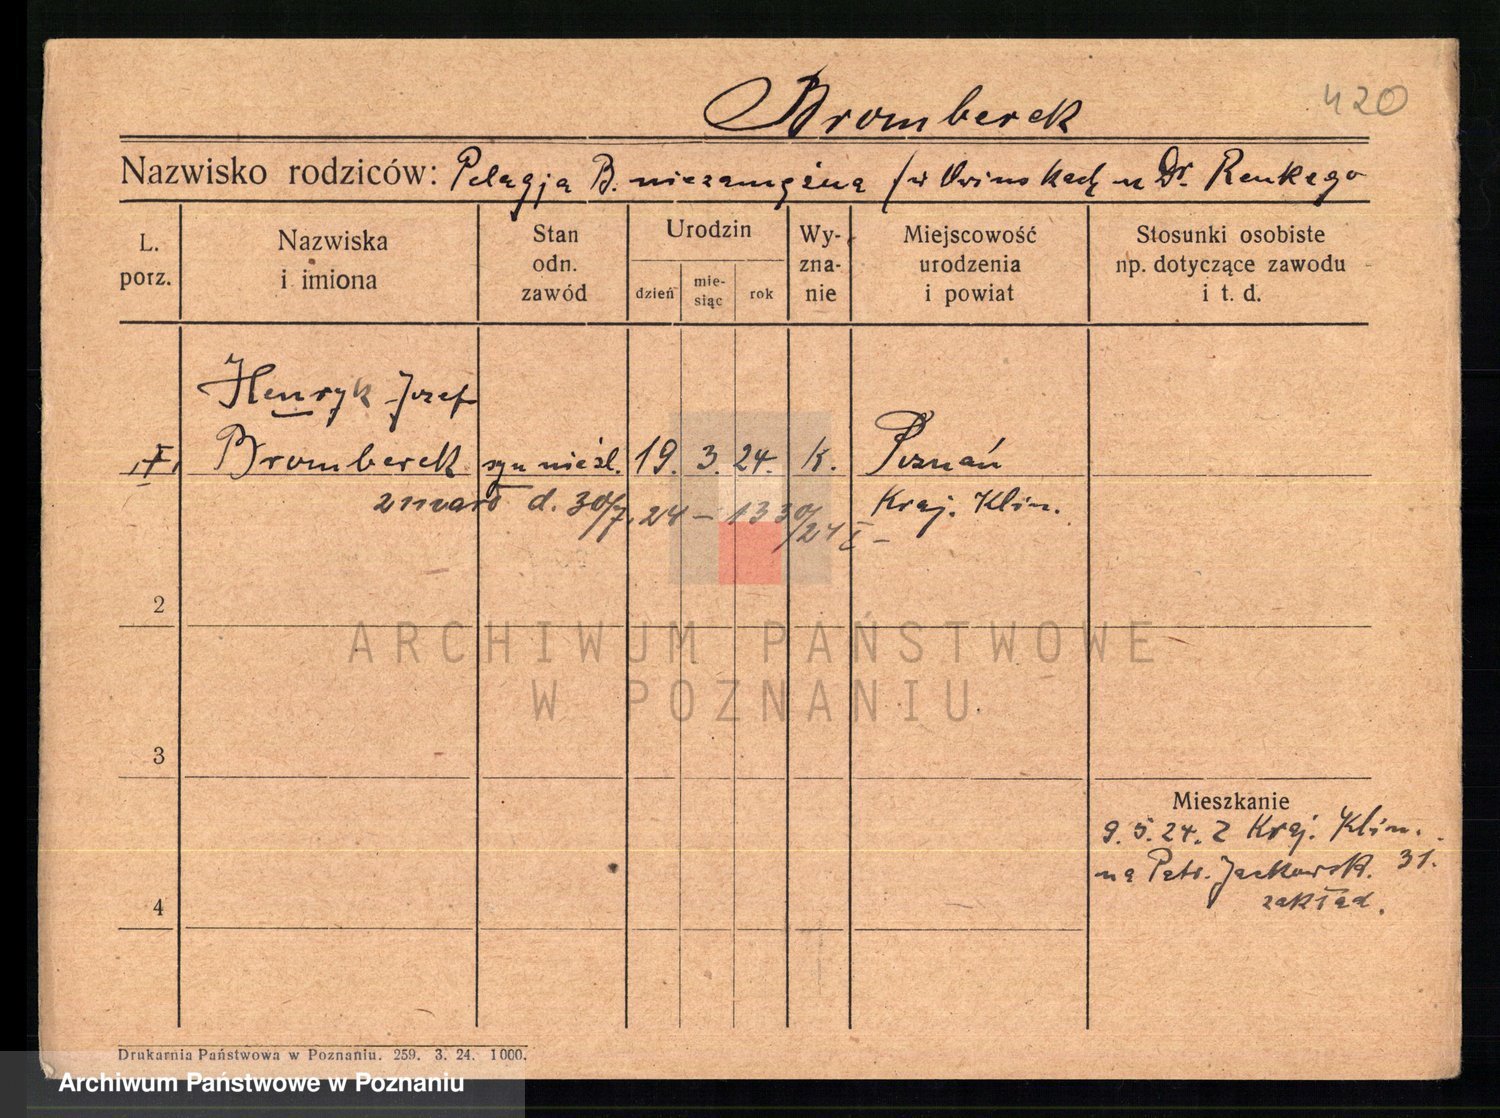 420
Bromberek
Nazwisko rodziców: Pelagja B. niezamężna /w Owinskach u Dr. Renkego
L. porz.
Nazwiska i imiona
Stan odn. zawód
Urodzin
dzień
mie-siąc
rok
Wy-zna-nie
Miejscowość urodzenia i powiat
Stosunki osobiste np. dotyczące zawodu i t. d.
Henryk Jozef
I. Bromberek syn nieśl. 19. 3. 24. K. Poznań
zmarł d. 30/7. 24 – 13 30/24 I – Kraj. Klin.
2
ARCHIWUM PAŃSTWOWE
W POZNANIU
3
Mieszkanie
9. 5. 24. Z Kraj. Klin.
na Patr. Jackowsk. 31.
zakład.
4
Drukarnia Państwowa w Poznaniu. 259. 3. 24. 1000.
Archiwum Państwowe w Poznaniu